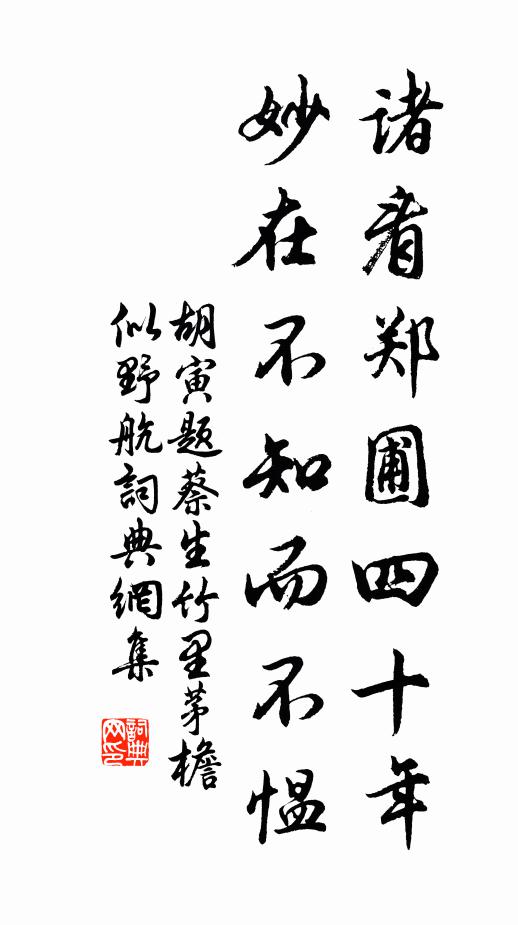 诸看郑圃四十年
妙在不知而不愠
胡寅题蔡生竹里茅檐
似野航詞典網集
詞典
网印